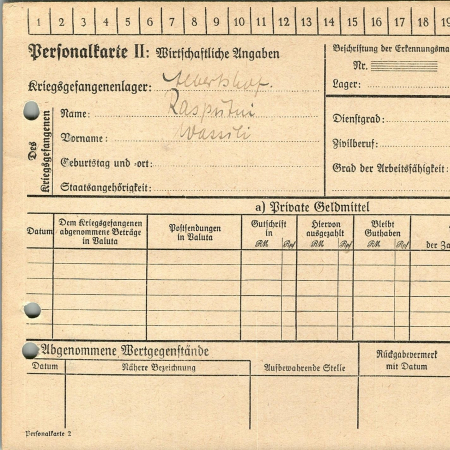 1 2 3 4 5 6 7 8 9 10 11 12 13 14 15 16 17 18 19
Personalkarte II: Wirtschaftliche Angaben
Kriegsgefangenenlager:
Des Kriegsgefangenen
Name: Rasputni
Vorname: Wassili
Geburtstag und -ort:
Staatsangehörigkeit:
Beschriftung der Erkennungsma
Nr.
Lager:
Dienstgrad:
Zivilberuf:
Grad der Arbeitsfähigkeit:
a) Private Geldmittel
Datum
Dem Kriegsgefangenen
abgenommene Beträge
in Valuta
Postsendungen
in Valuta
Gutschrift
in
RM Rpf
Hiervon
ausgezahlt
RM Rpf
Bleibt
Guthaben
RM Rpf
der Za
Abgenommene Wertgegenstände
Datum
Nähere Bezeichnung
Aufbewahrende Stelle
Rückgabevermerk
mit Datum
Personalkarte 2